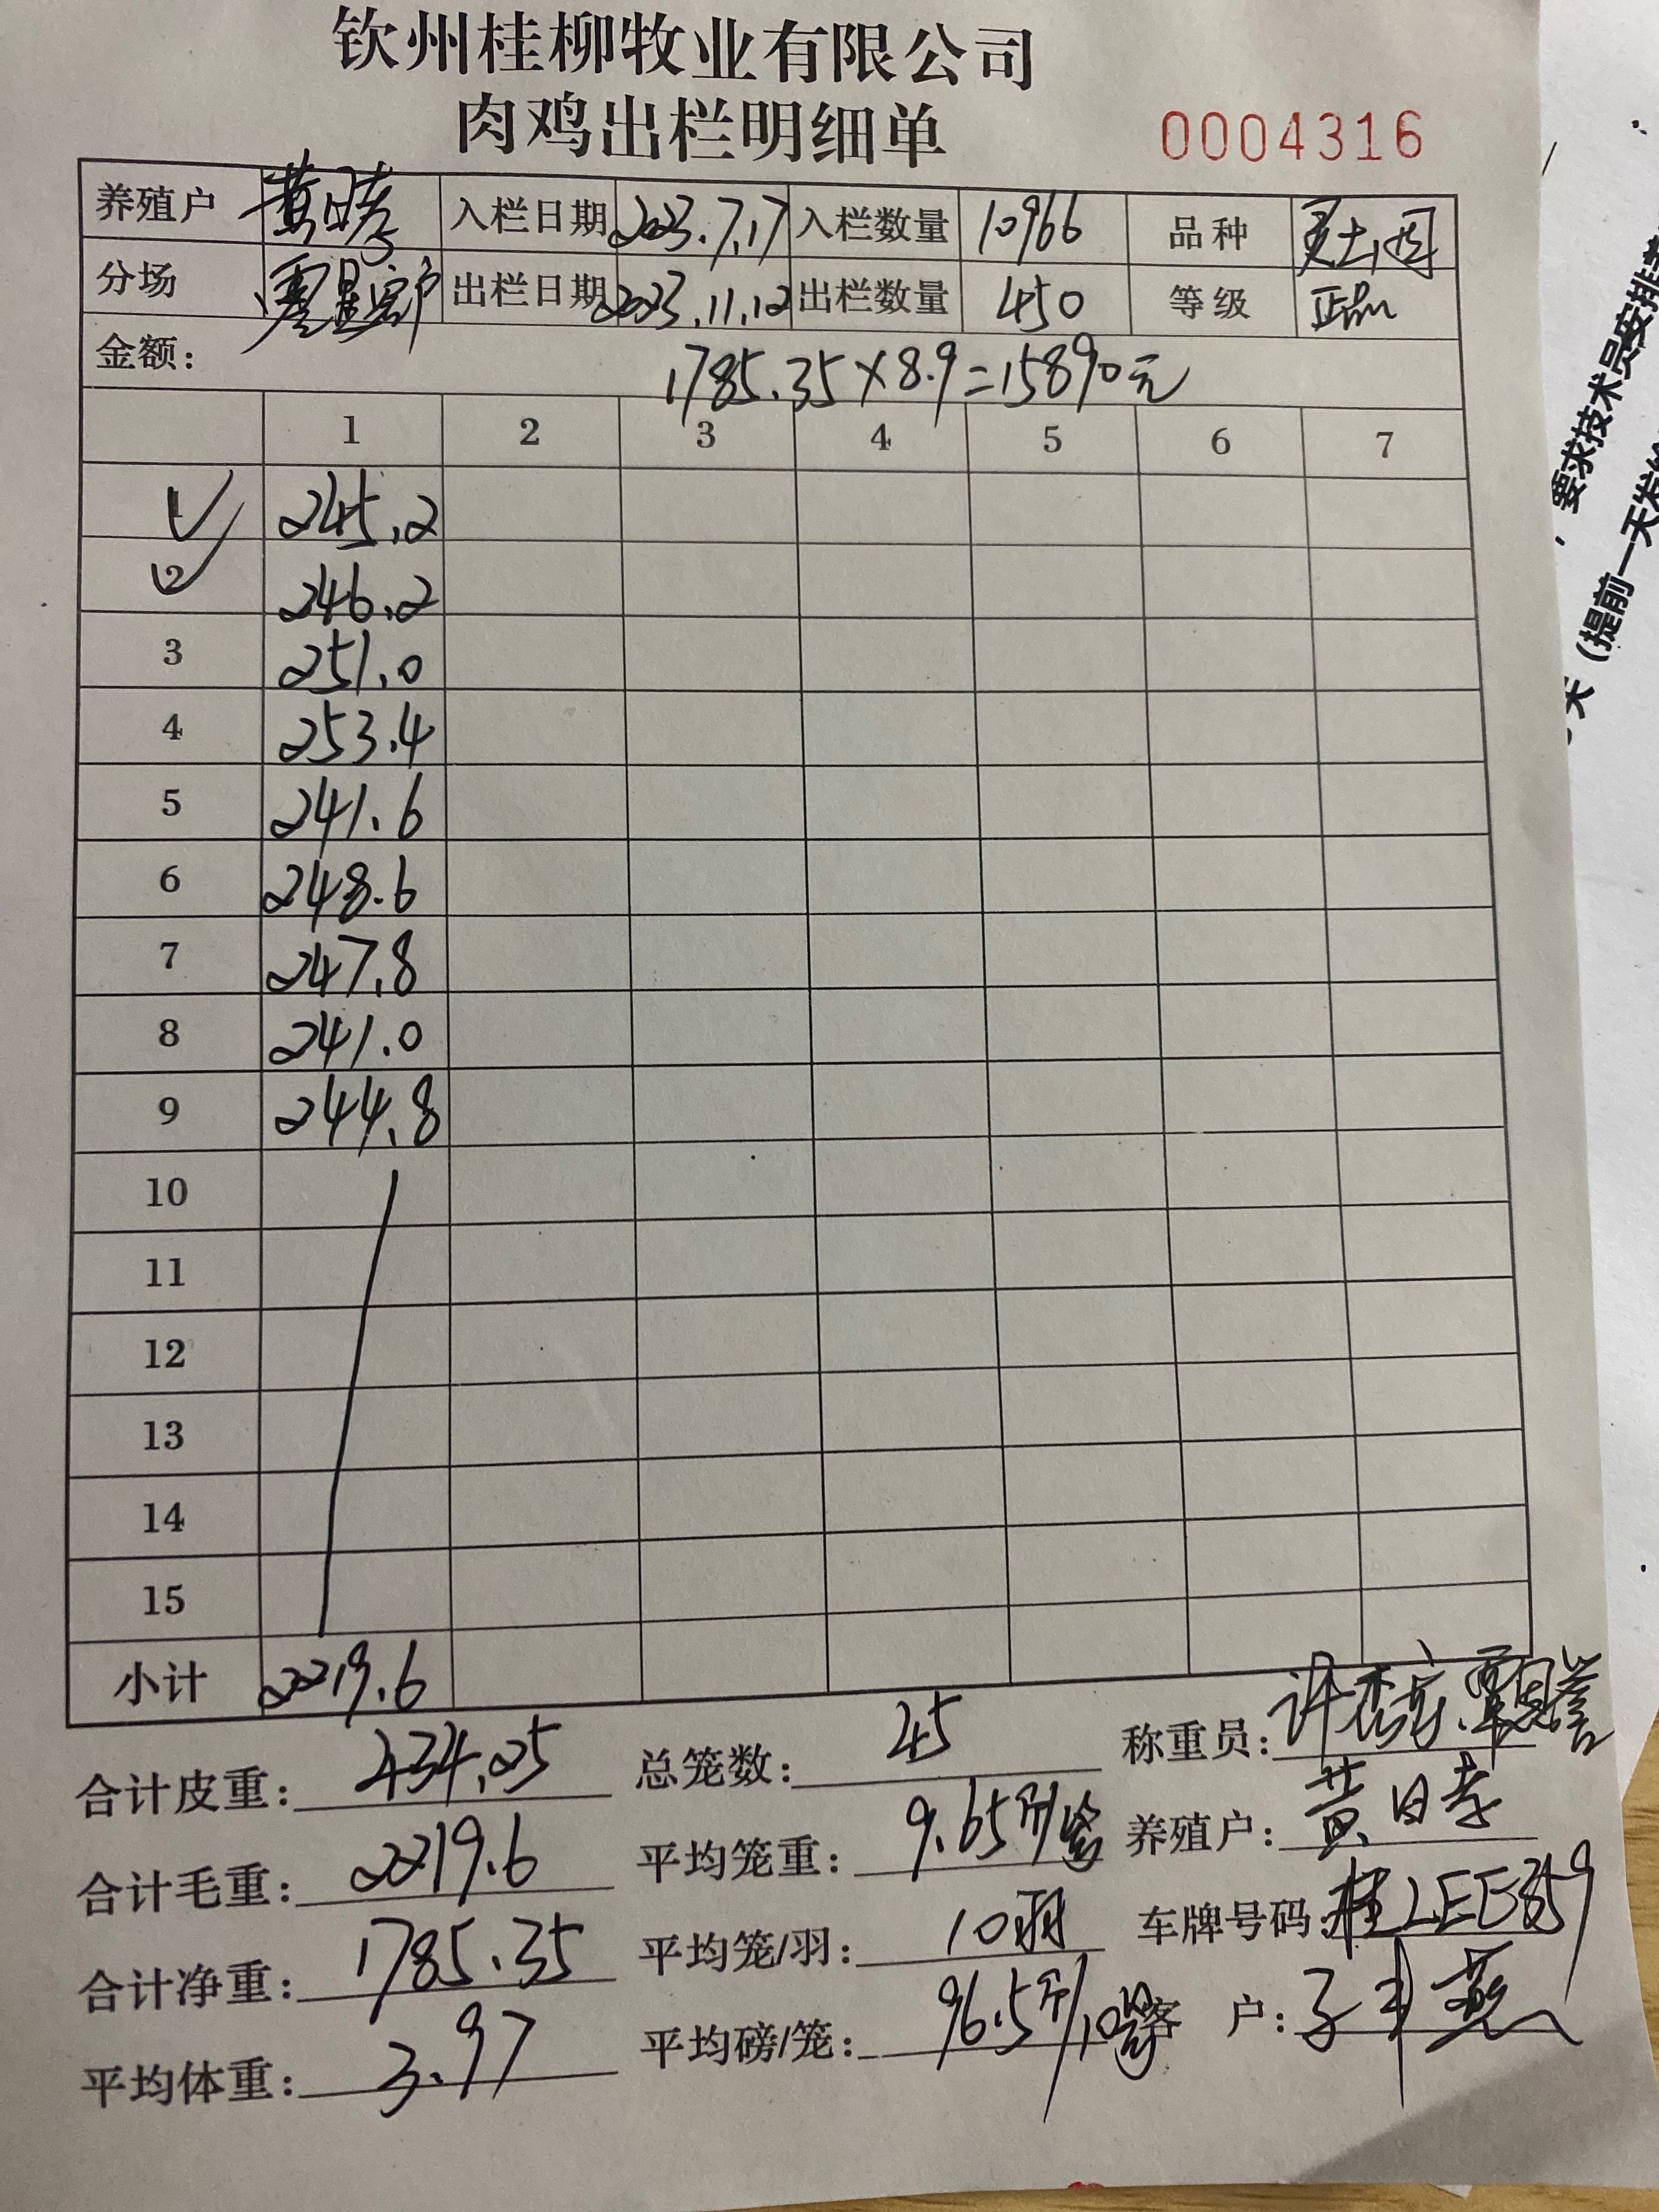 钦州桂柳牧业有限公司
肉鸡出栏明细单 0004316
养殖户 黄日孝 入栏日期 2023.7.17 入栏数量 10966 品种
分场 出栏日期 2023.11.12 出栏数量 450 等级 正品
金额: 1785.35×8.9=15890元
1 2 3 4 5 6 7
1 245.2
2 246.2
3 251.0
4 253.4
5 241.6
6 248.6
7 247.8
8 241.0
9 244.8
10
11
12
13
14
15
小计 2219.6
合计皮重: 434.25 总笼数: 45 称重员:
合计毛重: 2219.6 平均笼重: 9.65斤/笼 养殖户: 黄日孝
合计净重: 1785.35 平均笼/羽: 10羽 车牌号码: 桂LEE859
平均体重: 3.97 平均磅/笼: 96.5斤/10笼 客户:
要求技术员安排
(提前一天